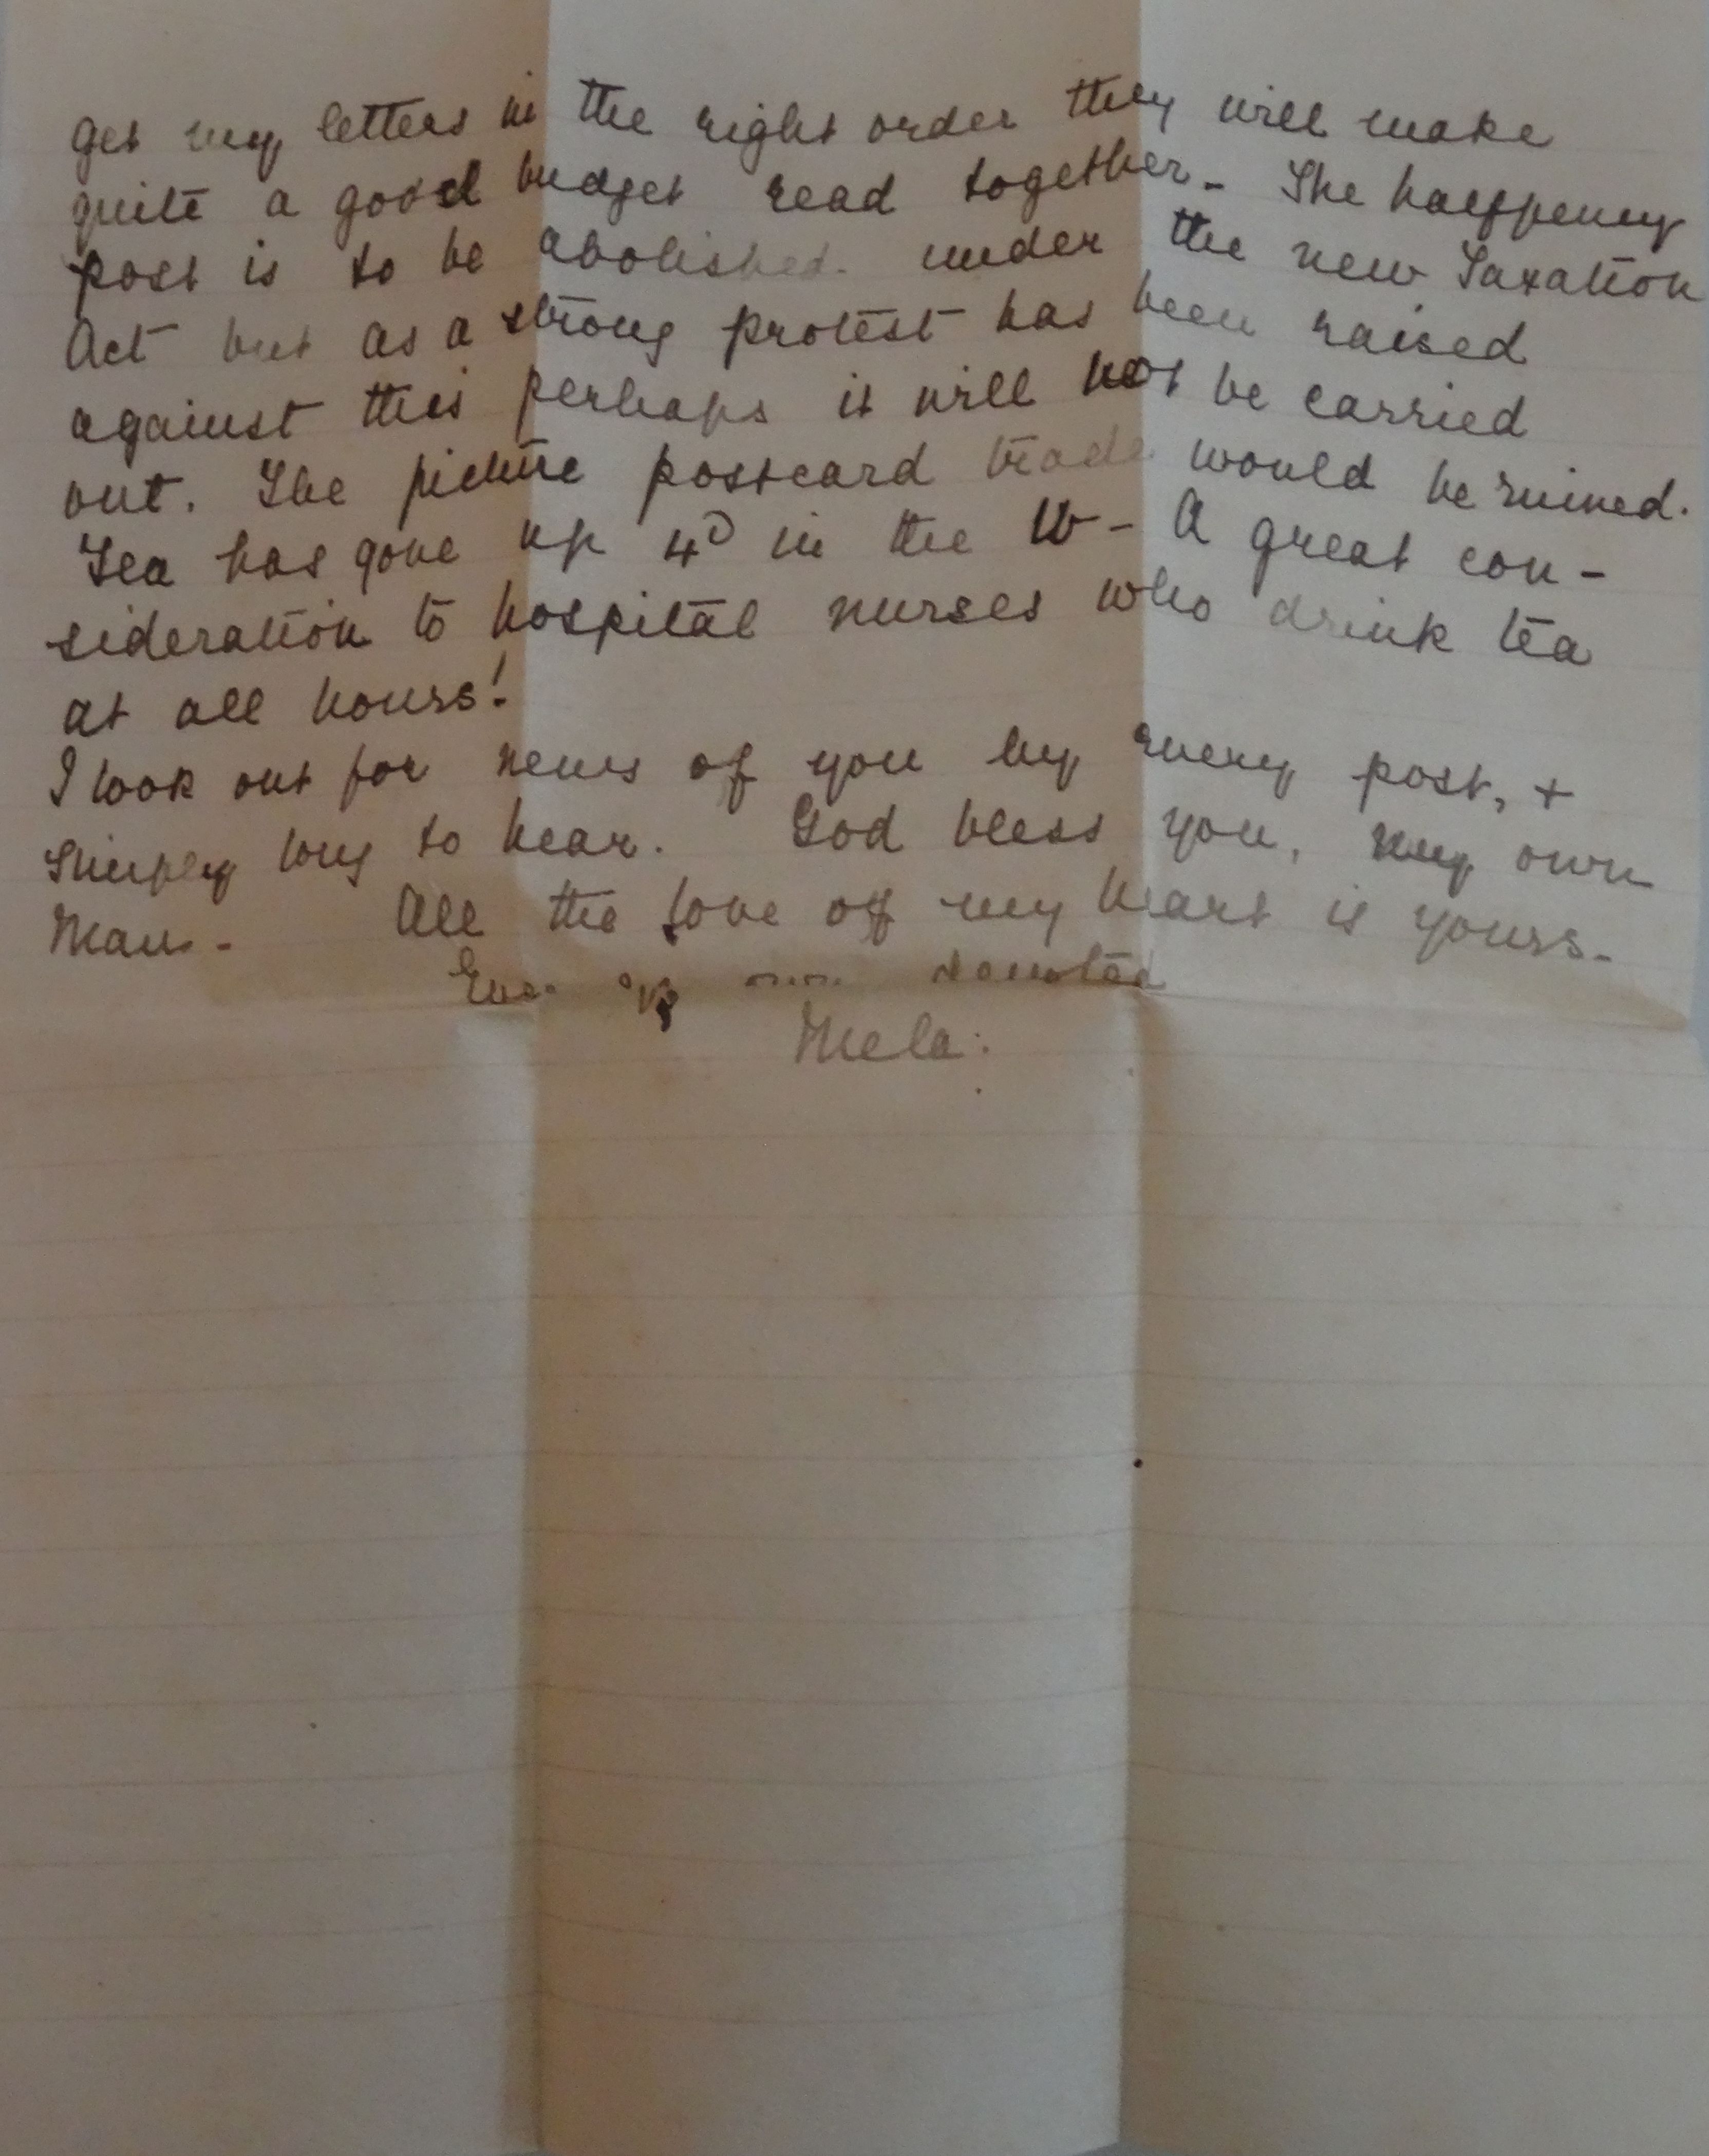 get my letters in the right order they will make
quite a good budget read together - The halfpenny
post is to be abolished. under the new Taxation
Act but as a strong protest has been raised
against this perhaps it will not be carried
out. The picture postcard trade would be ruined.
Tea has gone up 4D in the lb - A great con-
sideration to hospital nurses who drink tea
at all hours!
I look out for news of you by every post, +
simply long to hear. God bless you, my own
Man - All the love of my heart is yours -
devoted
Mela.